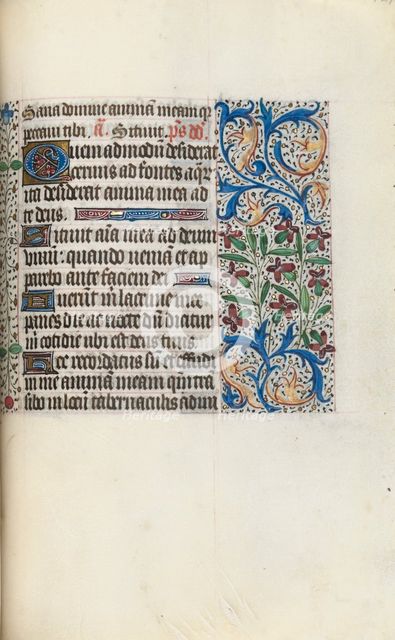 Sana domine animā meam qr
peccaui tibi. A. Sitiuit. ps dd.
Quem admodū desiderat
ceruus ad fontes aqr
ita desiderat anima mea ad
te deus.
Sitiuit aīa mea ad deum
viuū: quando veniā et ap
parebo ante faciem dei
Fuerūt m lacrime mee
panes die ac nocte dū dicitur
m cotidie ubi est deus tuus.
Hec recordatus sū et effudi
in me animā meam qm tra
sibo in locū tabernaculi
heritage
heritage